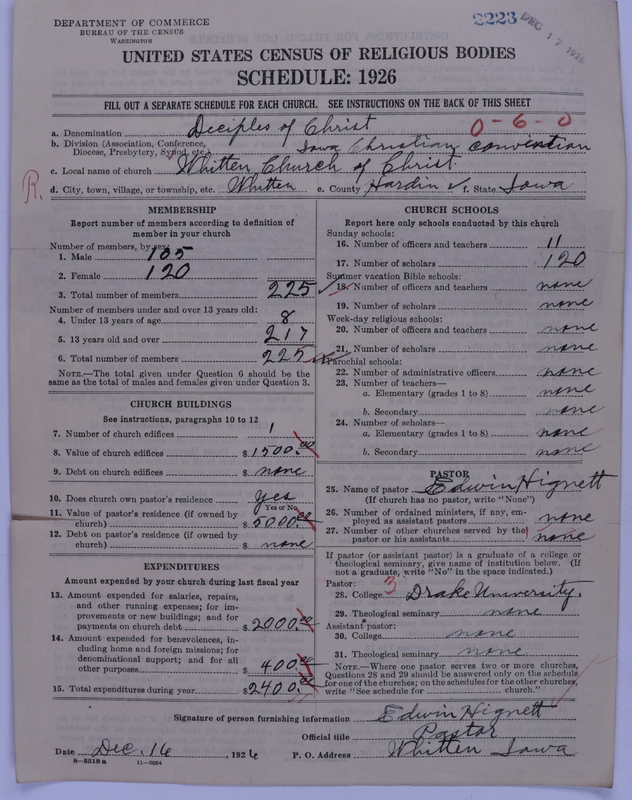 DEPARTMENT OF COMMERCE
BUREAU OF THE CENSUS
WASHINGTON
2223 DEC 17 1926
UNITED STATES CENSUS OF RELIGIOUS BODIES
SCHEDULE: 1926
FILL OUT A SEPARATE SCHEDULE FOR EACH CHURCH. SEE INSTRUCTIONS ON THE BACK OF THIS SHEET
a. Denomination Deciples of Christ 0-6-0
b. Division (Association, Conference, Diocese, Presbytery, Synod, etc.) Iowa Christian Convention
c. Local name of church Whitten Church of Christ
R.
d. City, town, village, or township, etc. Whitten e. County Hardin f. State Iowa
MEMBERSHIP
Report number of members according to definition of
member in your church
Number of members, by sex:
1. Male 105
2. Female 120
3. Total number of members 225
Number of members under and over 13 years old:
4. Under 13 years of age 8
5. 13 years old and over 217
6. Total number of members 225
NOTE.—The total given under Question 6 should be the
same as the total of males and females given under Question 3.
CHURCH BUILDINGS
See instructions, paragraphs 10 to 12
7. Number of church edifices 1
8. Value of church edifices $ 1500.00
9. Debt on church edifices $ none
10. Does church own pastor's residence yes
Yes or No
11. Value of pastor's residence (if owned by
church) $ 5000.00
12. Debt on pastor's residence (if owned by
church) $ none
EXPENDITURES
Amount expended by your church during last fiscal year
13. Amount expended for salaries, repairs,
and other running expenses; for im-
provements or new buildings; and for
payments on church debt $ 2000.00
14. Amount expended for benevolences, in-
cluding home and foreign missions; for
denominational support; and for all
other purposes $ 400.00
15. Total expenditures during year $ 2400.00
CHURCH SCHOOLS
Report here only schools conducted by this church
Sunday schools:
16. Number of officers and teachers 11
17. Number of scholars 120
Summer vacation Bible schools:
18. Number of officers and teachers none
19. Number of scholars none
Week-day religious schools:
20. Number of officers and teachers none
21. Number of scholars none
Parochial schools:
22. Number of administrative officers none
23. Number of teachers—
a. Elementary (grades 1 to 8) none
b. Secondary none
24. Number of scholars—
a. Elementary (grades 1 to 8) none
b. Secondary none
PASTOR
25. Name of pastor Edwin Hignett
(If church has no pastor, write "None")
26. Number of ordained ministers, if any, em-
ployed as assistant pastors none
27. Number of other churches served by the
pastor or his assistants none
If pastor (or assistant pastor) is a graduate of a college or
theological seminary, give name of institution below. (If
not a graduate, write "No" in the space indicated.)
Pastor:
28. College 3 Drake University.
29. Theological seminary none
Assistant pastor:
30. College none
31. Theological seminary none
NOTE.—Where one pastor serves two or more churches,
Questions 28 and 29 should be answered only on the schedule
for one of the churches; on the schedules for the other churches,
write "See schedule for church."
Signature of person furnishing information Edwin Hignett
Official title Pastor
Date Dec. 16, 1926 P. O. Address Whitten Iowa
8—5518a 11—9084